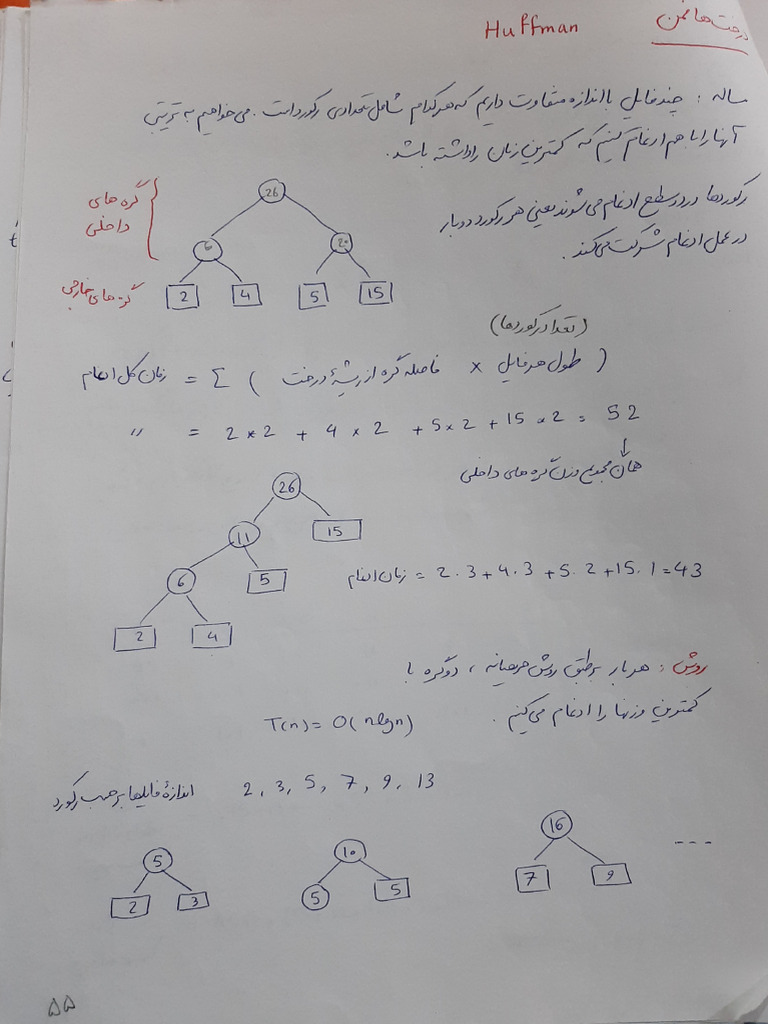 درخت هافمن
Huffman
مساله : چند فایل با اندازه متفاوت داریم که هر کدام شامل تعدادی رکورد است . می خواهیم به ترتیبی
آنها را با هم ادغام کنیم که کمترین زمان را داشته باشد .
رکوردها در دو سطح ادغام می شوند یعنی هر رکورد دو بار
در عمل ادغام شرکت می کند .
گره های
داخلی
26
6 20
گره های خارجی
2 4 5 15
(تعداد رکوردها)
زمان کل ادغام = Σ ( فاصله گره از ریشهٔ درخت × طول هر فایل )
〃 = 2 × 2 + 4 × 2 + 5 × 2 + 15 × 2 = 52
↓
همان مجموع وزن گره های داخلی
26
11 15
6 5
زمان ادغام = 2 . 3 + 4 . 3 + 5 . 2 + 15 . 1 = 43
2 4
روش : هر بار بر طبق روش حریصانه ، دو گره با
کمترین وزنها را ادغام می کنیم .
T(n) = O( nlgn )
اندازهٔ فایلها بر حسب رکورد 2 , 3 , 5 , 7 , 9 , 13
5 10 16 ---
2 3 5 5 7 9
۵۵